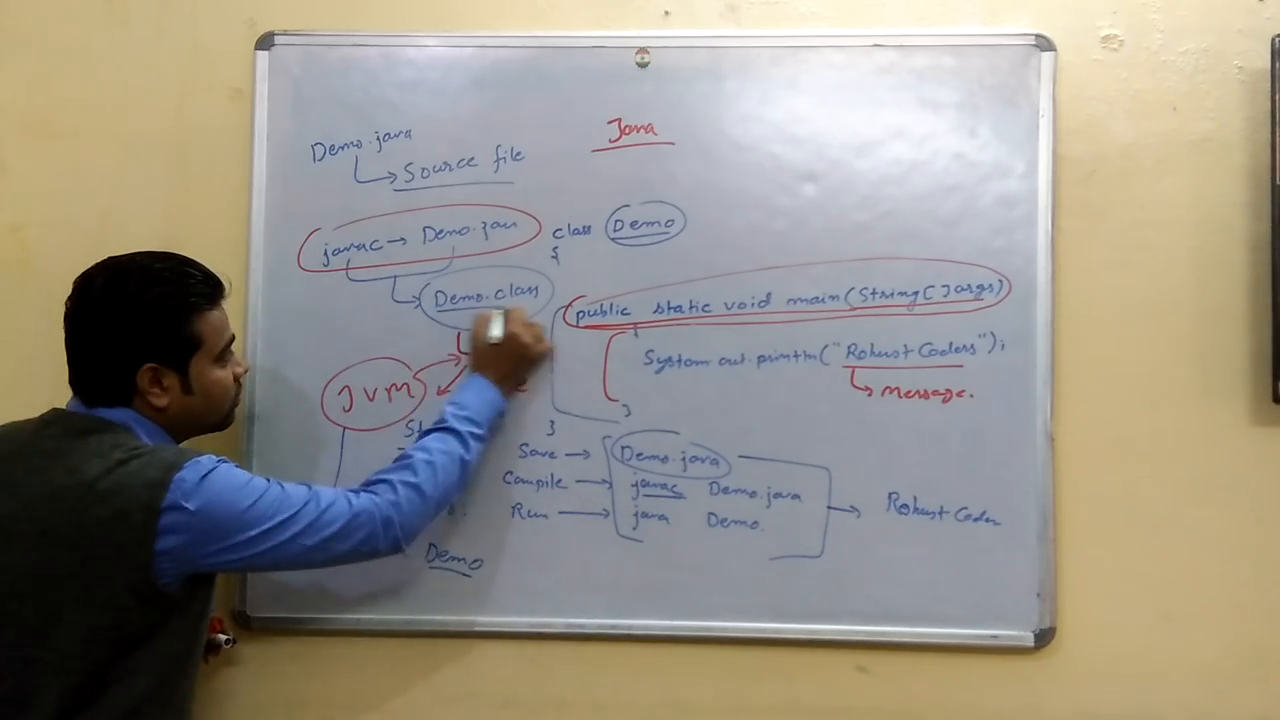 Java
Demo.java
Source file
javac → Demo.java
Demo.class
JVM
Demo
class Demo
{
public static void main(String[]args)
{
System.out.println("Robust Coders");
message.
}
}
Save → Demo.java
Compile → javac Demo.java
Run → java Demo.
Robust Coder